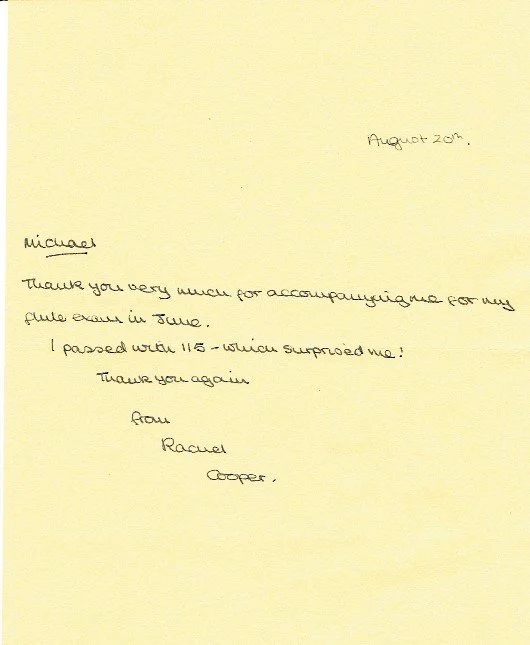 August 20th.
Michael
Thank you very much for accompanying me for my
flute exam in June.
I passed with 115 - which surprised me!
Thank you again
from
Rachel
Cooper.